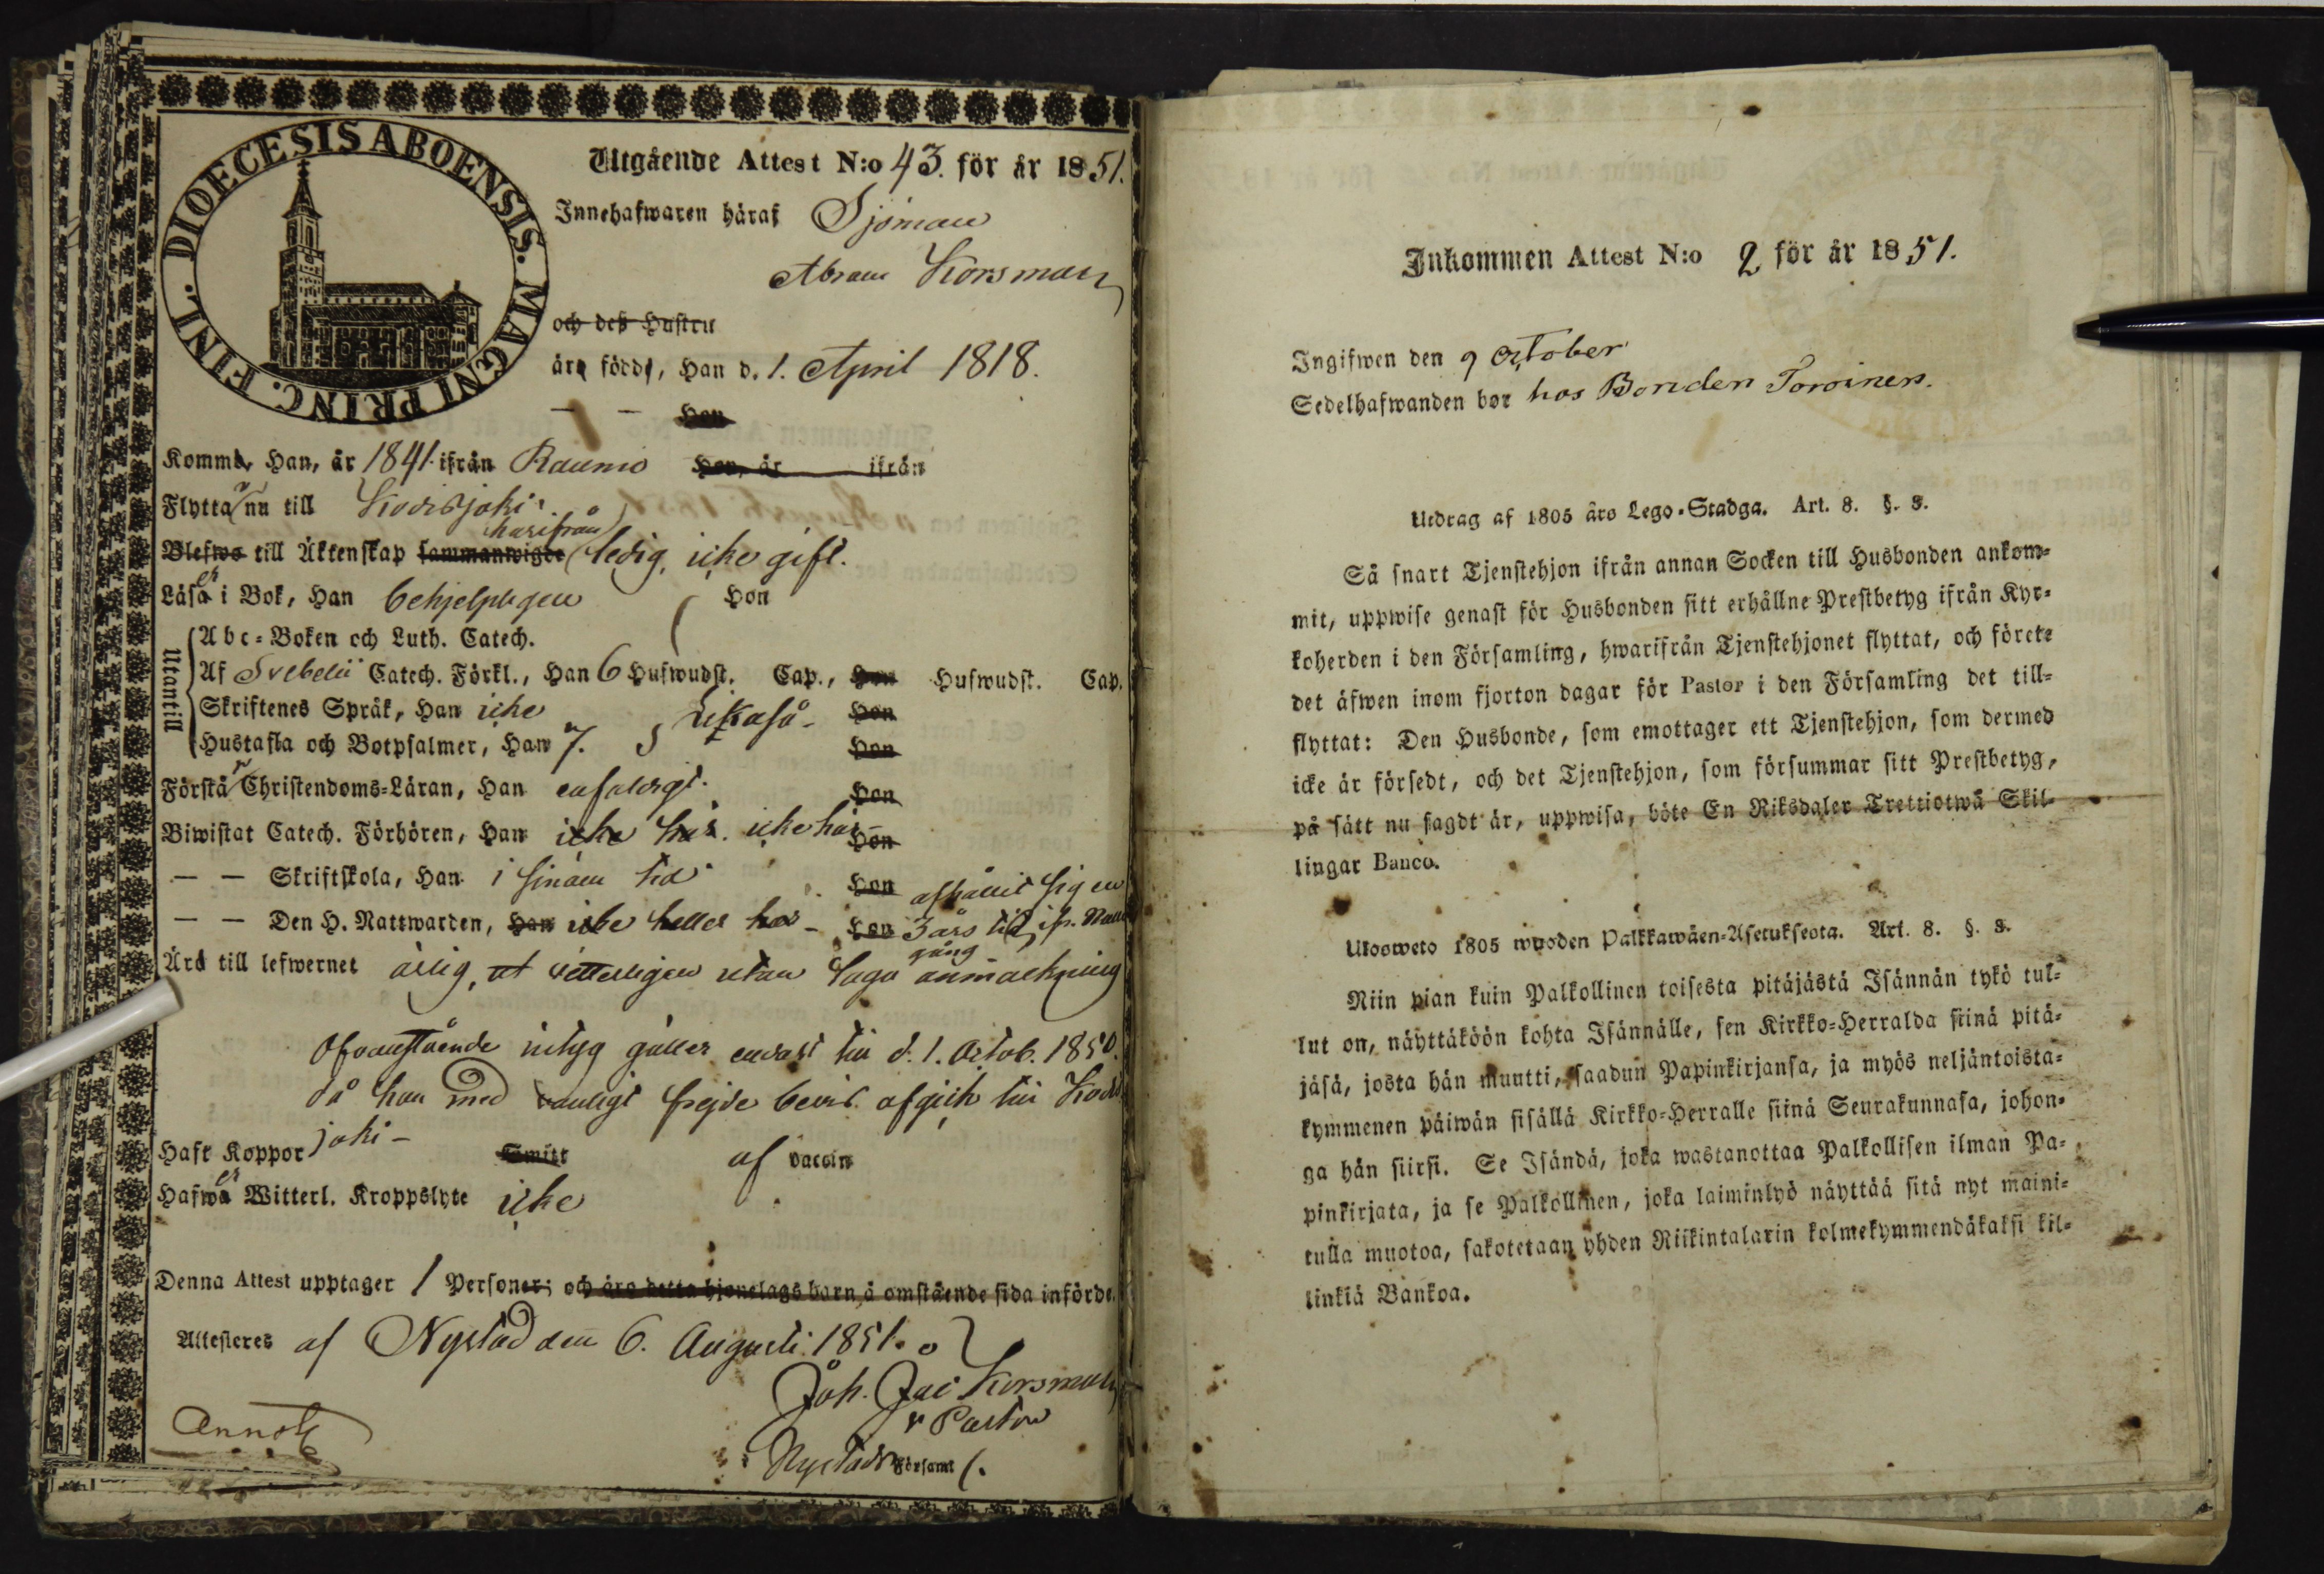 DIOECESIS ABOENSIS. MAGNI PRINC. FINL.
Utgående Attest N:o 43. för år 1851.
Innehafwaren häraf Sjöman
Abram Korsman
och deß Hustru
äro födde, Han d. 1. April 1818.
— — Hon
Komme, Han, år 1841 ifrån Raumo Hon, år ifrån
Flyttar nu till Kodisjoki
härifrån
Blefwo till Äktenskap sammanwigde ledig, icke gift.
Läser i Bok, Han behjelpligen Hon
Utantill
Abc-Boken och Luth. Catech.
Af Svebelii Catech. Förkl., Han 6 Hufwudst. Cap., Hon Hufwudst. Cap.
Skriftenes Språk, Han icke Hon
Hustafla och Botpsalmer, Han 7. Likaså Hon
Förstår Christendoms-Läran, Han enfaldigt. Hon
Biwistat Catech. Förhören, Han icke här. icke här Hon
— — Skriftskola, Han i sinom tid Hon afhållit sig en
— — Den H. Nattwarden, Han icke heller här - Hon 3 års tid ifr. Nattv.
gång
Ärd till lefwernet ärlig, vetterligen utan laga anmärkning
Ofvanstående intyg gäller endast till d. 1. Octob. 1850.
då han med vanligt frejde bevis afgick till Kodis
joki -
Haft Koppor Smitt af vaccin
Hafwer Witterl. Kroppslyte icke
Denna Attest upptager 1 Personer; och äro detta hjonelags barn å omstående sida införde.
Attesteres af Nystad den 6. Augusti 1851.
Joh. Jac Korsman
v Pastor
i Nystads Församl.
Inkommen Attest N:o 2 för år 1851.
Ingifwen den 9 October
Sedelhafwanden bor hos Bonden Toroinen.
Utdrag af 1805 års Lego-Stadga. Art. 8. §. 3.
Så snart Tjenstehjon ifrån annan Socken till Husbonden ankom-
mit, uppwise genast för Husbonden sitt erhållne Prestbetyg ifrån Kyr-
koherden i den Församling, hwarifrån Tjenstehjonet flyttat, och förete
det äfwen inom fjorton dagar för Pastor i den Församling det till-
flyttat: Den Husbonde, som emottager ett Tjenstehjon, som dermed
icke är försedt, och det Tjenstehjon, som försummar sitt Prestbetyg,
på sätt nu sagdt är, uppwisa, böte En Riksdaler Trettiotwå Skil-
lingar Banco.
Ulosweto 1805 wuoden Palkkawäen-Asetuksesta. Art. 8. §. 3.
Niin pian kuin Palkollinen toisesta pitäjästä Isännän tykö tul-
lut on, näyttäköön kohta Isännälle, sen Kirkko-Herralda siinä pitä-
jäsä, josta hän muutti, saadun Papinkirjansa, ja myös neljäntoista-
kymmenen päiwän sisällä Kirkko-Herralle siinä Seurakunnasa, johon-
ga hän siirsi. Se Isändä, joka wastanottaa Palkollisen ilman Pa-
pinkirjata, ja se Palkollinen, joka laiminlyö näyttää sitä nyt maini-
tulla muotoa, sakotetaan yhden Riikintalarin kolmekymmendäkaksi kil-
linkiä Bankoa.